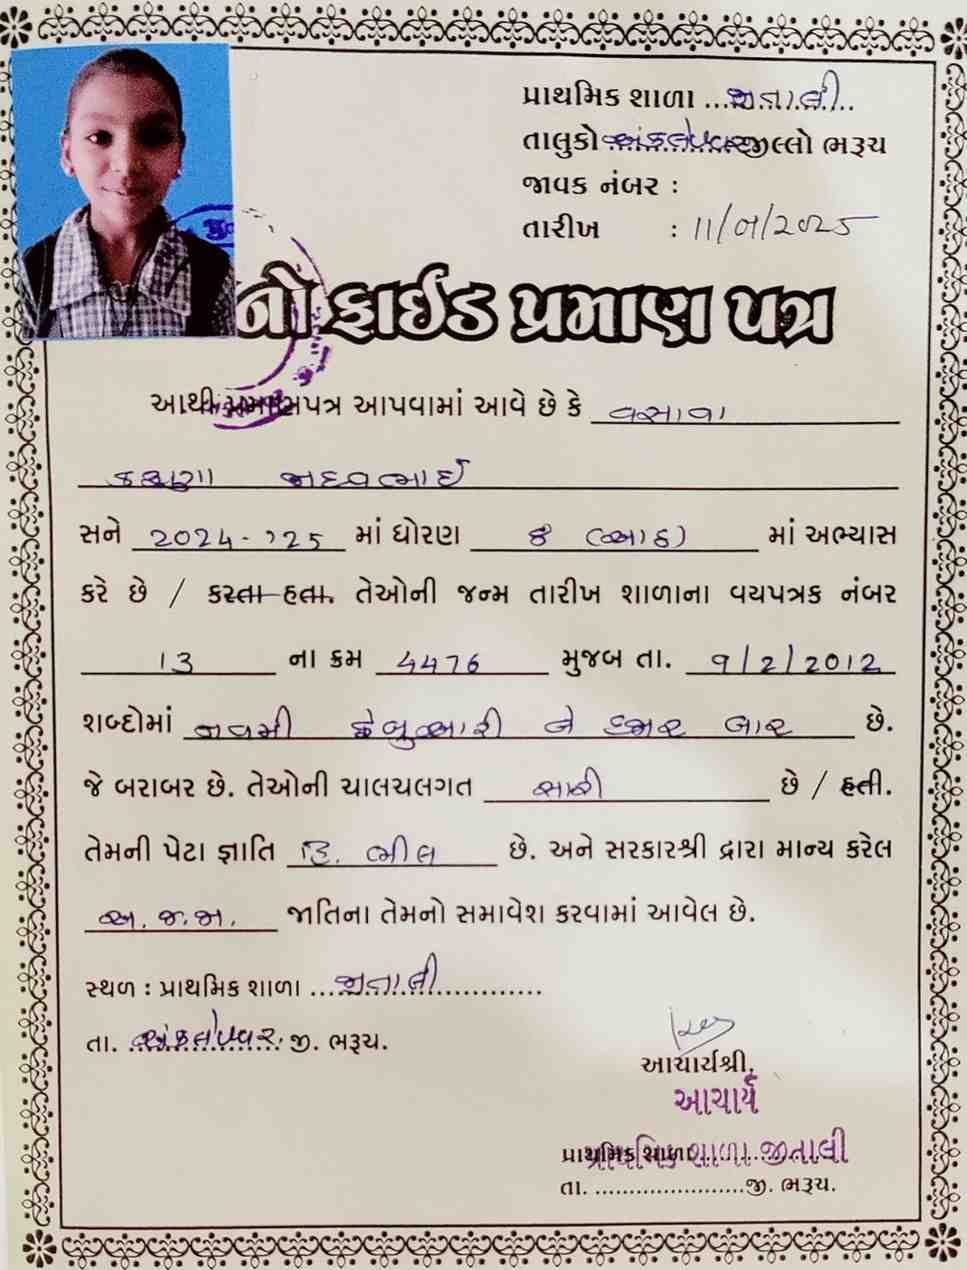 પ્રાથમિક શાળા ...જીતાલી..
તાલુકો અંકલેશ્વર જીલ્લો ભરૂચ
જાવક નંબર :
તારીખ : 11/01/2025
નો ફાઈડ પ્રમાણ પત્ર
આથી પ્રમાણપત્ર આપવામાં આવે છે કે વસાવા
કરૂણા
સને 2024-'25 માં ધોરણ ૮ (આઠ) માં અભ્યાસ
કરે છે / કરતા હતા. તેઓની જન્મ તારીખ શાળાના વયપત્રક નંબર
13 ના ક્રમ 4476 મુજબ તા. 9/2/2012
શબ્દોમાં નવમી ફેબ્રુઆરી બે હજાર બાર છે.
જે બરાબર છે. તેઓની ચાલચલગત સારી છે / હતી.
તેમની પેટા જ્ઞાતિ હિ. ભીલ છે. અને સરકારશ્રી દ્રારા માન્ય કરેલ
અ.જ.જા. જાતિના તેમનો સમાવેશ કરવામાં આવેલ છે.
સ્થળ : પ્રાથમિક શાળા ...જીતાલી...
તા. અંકલેશ્વર. જી. ભરૂચ.
આચાર્યશ્રી,
આચાર્ય
પ્રાથમિક શાળા
પ્રાથમિક શાળા જીતાલી
તા. ......................જી. ભરૂચ.